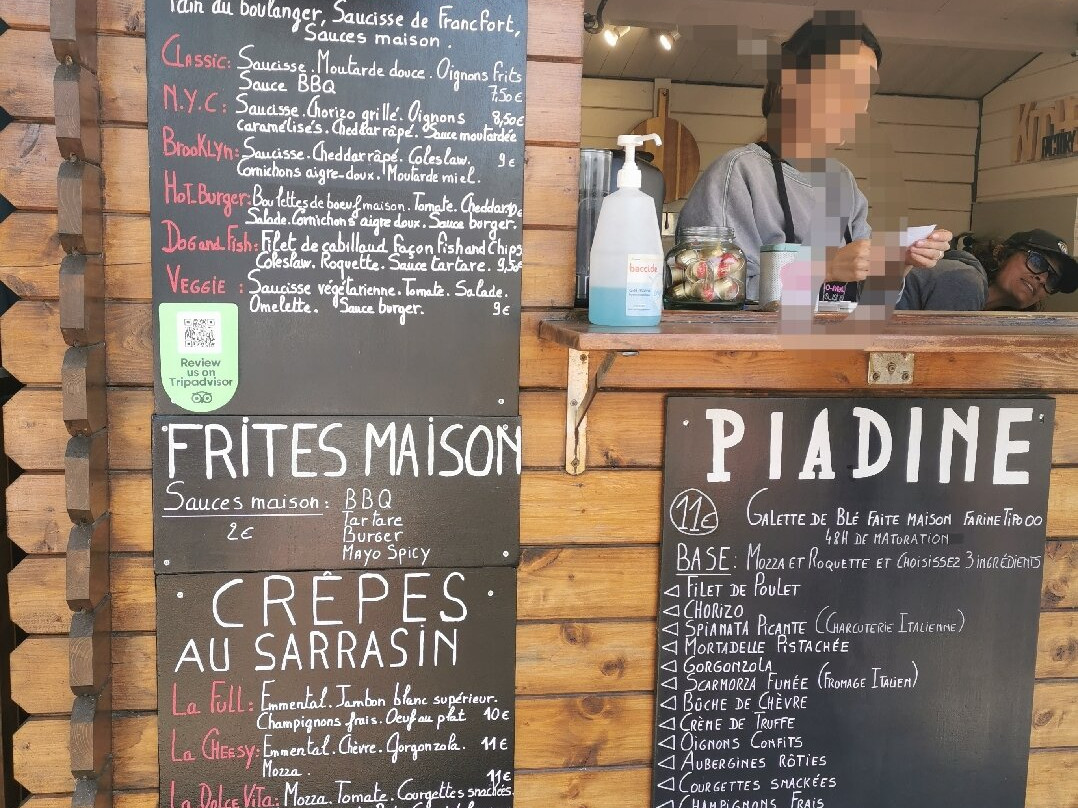 Pain du boulanger, Saucisse de Francfort,
Sauces maison.
Classic: Saucisse. Moutarde douce. Oignons frits
Sauce BBQ 7,50€
N.Y.C: Saucisse. Chorizo grillé. Oignons 8,50€
caramélisés. Cheddar râpé. Sauce moutardée
Brooklyn: Saucisse. Cheddar râpé. Coleslaw. 9€
Cornichons aigre-doux. Moutarde miel.
Hot Burger: Boulettes de boeuf maison. Tomate. Cheddar. 10€
Salade. Cornichons aigre doux. Sauce burger.
Dog and Fish: Filet de cabillaud façon Fish and Chips
Coleslaw. Roquette. Sauce tartare. 9,50€
Veggie: Saucisse végétarienne. Tomate. Salade.
Omelette. Sauce burger. 9€
Review
us on
Tripadvisor
FRITES MAISON
Sauces maison: BBQ
2€ Tartare
Burger
Mayo Spicy
CRÊPES
AU SARRASIN
La Full: Emmental. Jambon blanc supérieur.
Champignons frais. Oeuf au plat 10€
La Cheesy: Emmental. Chèvre. Gorgonzola. 11€
Mozza.
11€
La Dolce Vita: Mozza. Tomate. Courgettes snackées.
baccide
PIADINE
11€ GALETTE DE BLÉ FAITE MAISON FARINE TIPO 00
48H DE MATURATION
BASE: MOZZA ET ROQUETTE ET CHOISISSEZ 3 INGRÉDIENTS
FILET DE POULET
CHORIZO
SPIANATA PICANTE (CHARCUTERIE ITALIENNE)
MORTADELLE PISTACHÉE
GORGONZOLA
SCARMORZA FUMÉE (FROMAGE ITALIEN)
BÛCHE DE CHÈVRE
CRÈME DE TRUFFE
OIGNONS CONFITS
AUBERGINES RÔTIES
COURGETTES SNACKÉES
CHAMPIGNONS FRAIS